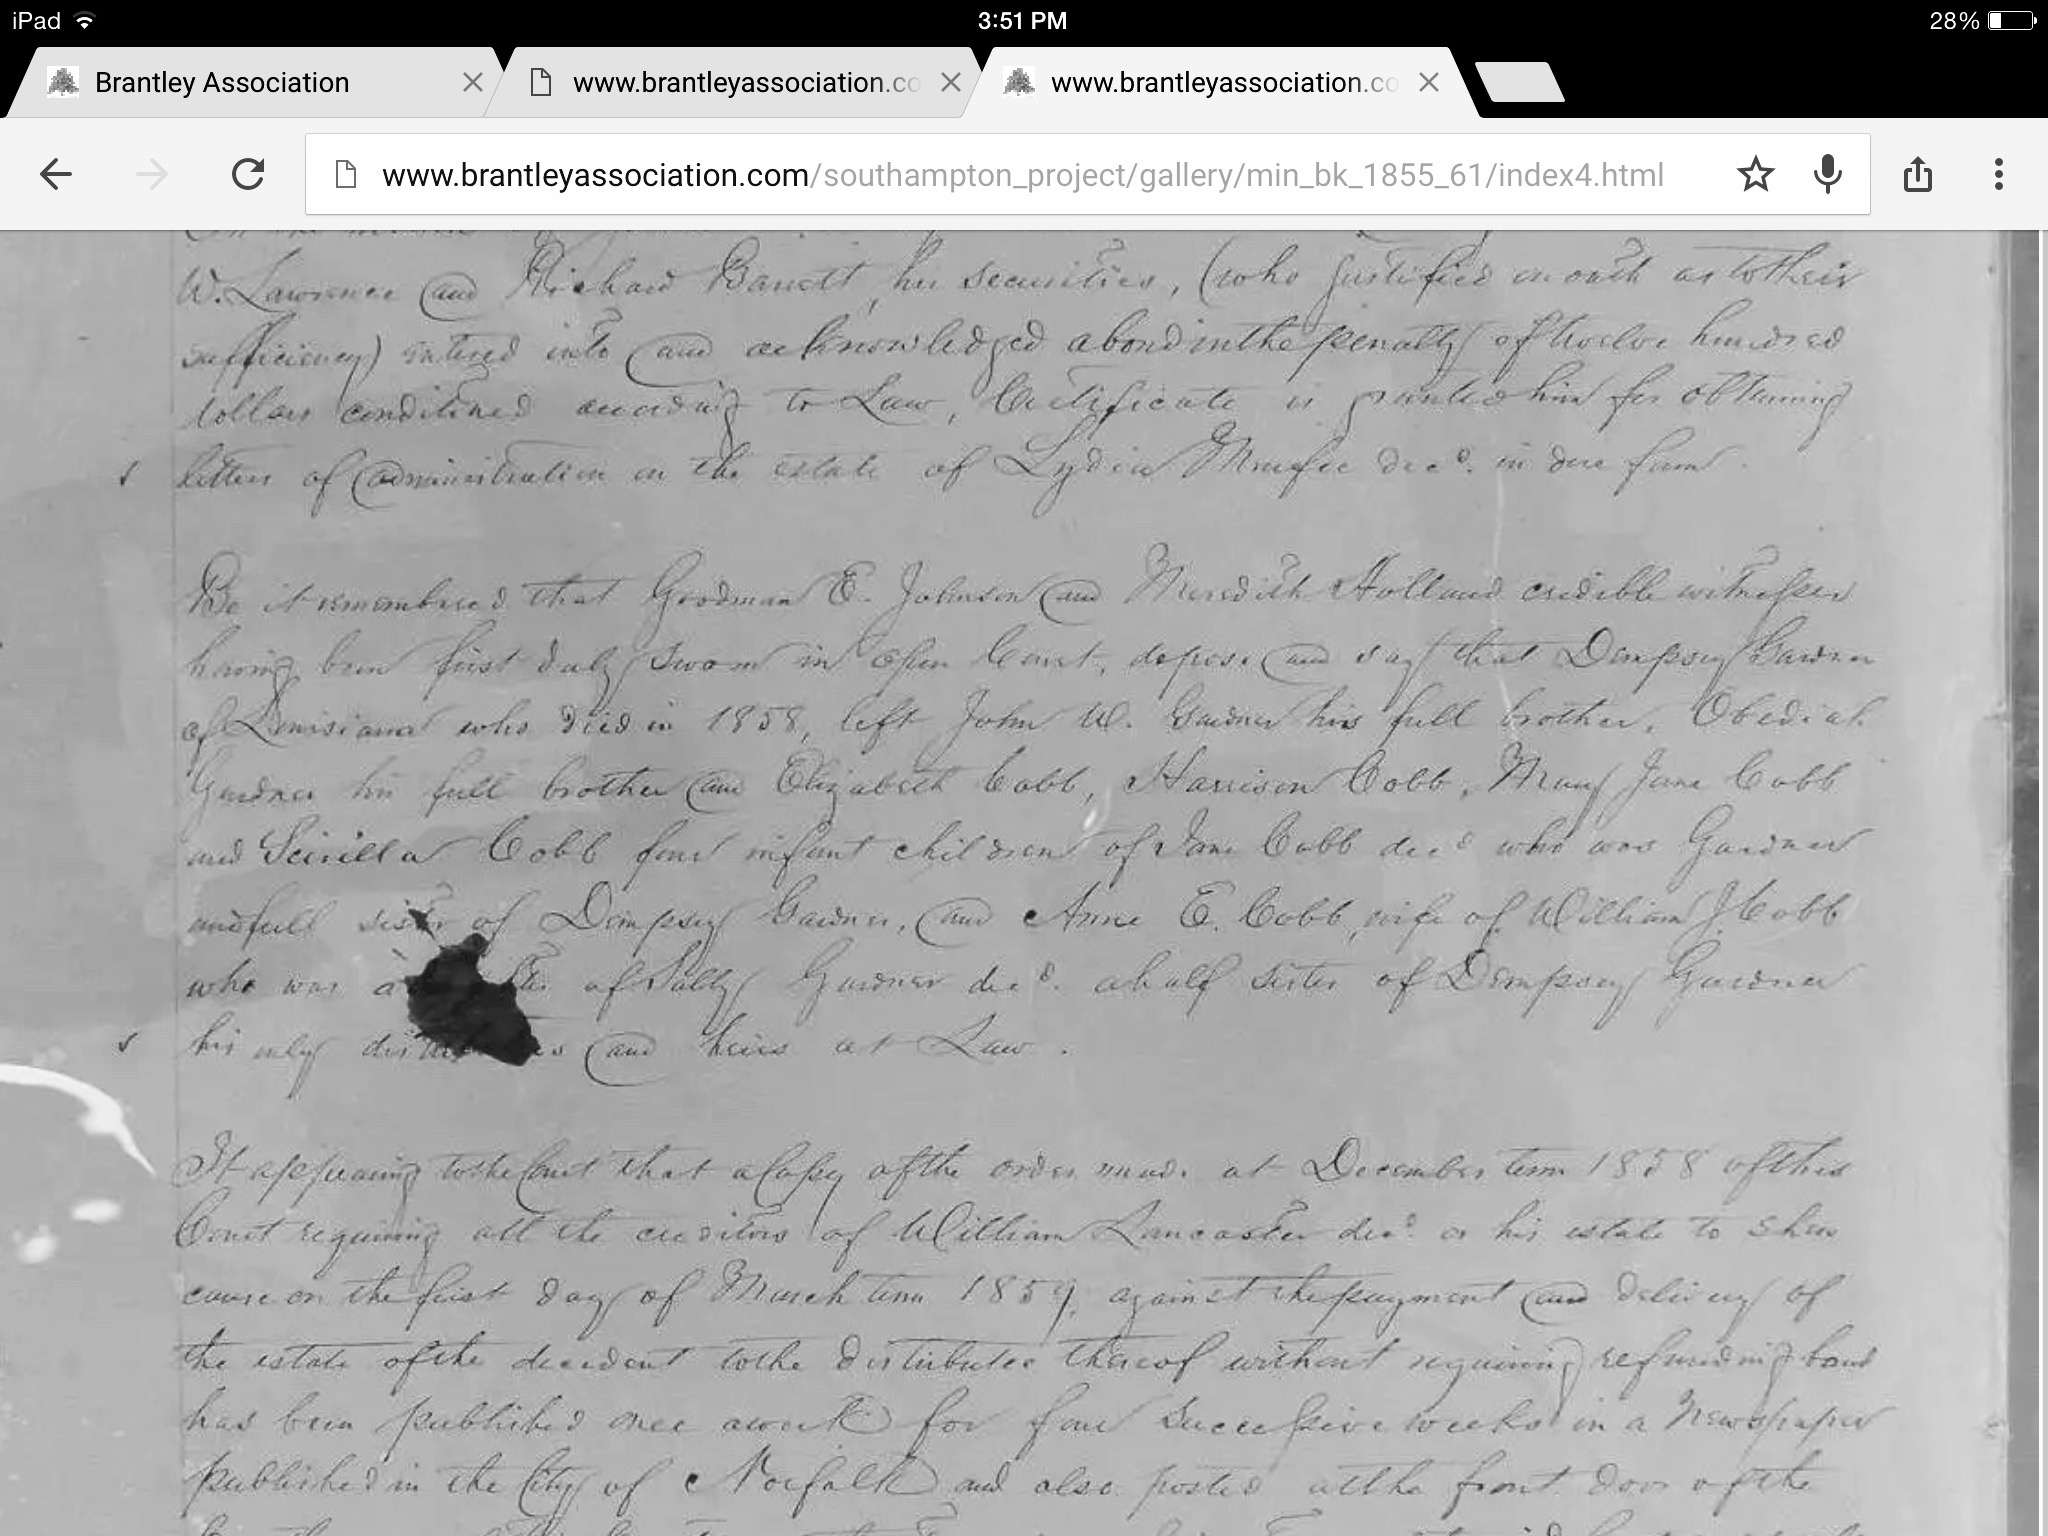 iPad 3:51 PM 28%
Brantley Association www.brantleyassociation.co www.brantleyassociation.co
www.brantleyassociation.com/southampton_project/gallery/min_bk_1855_61/index4.html
W. Lawrence and Richard Barrett, his securities, (who justified on oath as to their
sufficiency) entered into and acknowledged a bond in the penalty of twelve hundred
dollars conditioned according to Law, Certificate is granted him for obtaining
letters of administration on the estate of Lydia decd. in due form.
Be it remembered that Goodman E. Johnson and Meredith Holland credible witnesses
having been first duly sworn in open Court, depose and say that Dempsey Gardner
of Louisiana who died in 1858, left John W. Gardner his full brother, Obediah
Gardner his full brother and Elizabeth Cobb, Harrison Cobb, Mary Jane Cobb
and Scirilla Cobb four infant children of Jane Cobb decd who was Gardner
and full sister of Dempsey Gardner, and Anne E. Cobb, wife of William J Cobb
who was a of Sally Gardner decd. a half sister of Dempsey Gardner
his only and heirs at Law.
It appearing to the Court that a Copy of the order made at December term 1858 of this
Court requiring all the creditors of William Lancaster decd. or his estate to shew
cause on the first day of March term 1859, against the payment and delivery of
the estate of the decedent to the distributees thereof without requiring refunding bond
has been published once a week for four successive weeks in a Newspaper
published in the City of Norfolk and also posted at the front door of the